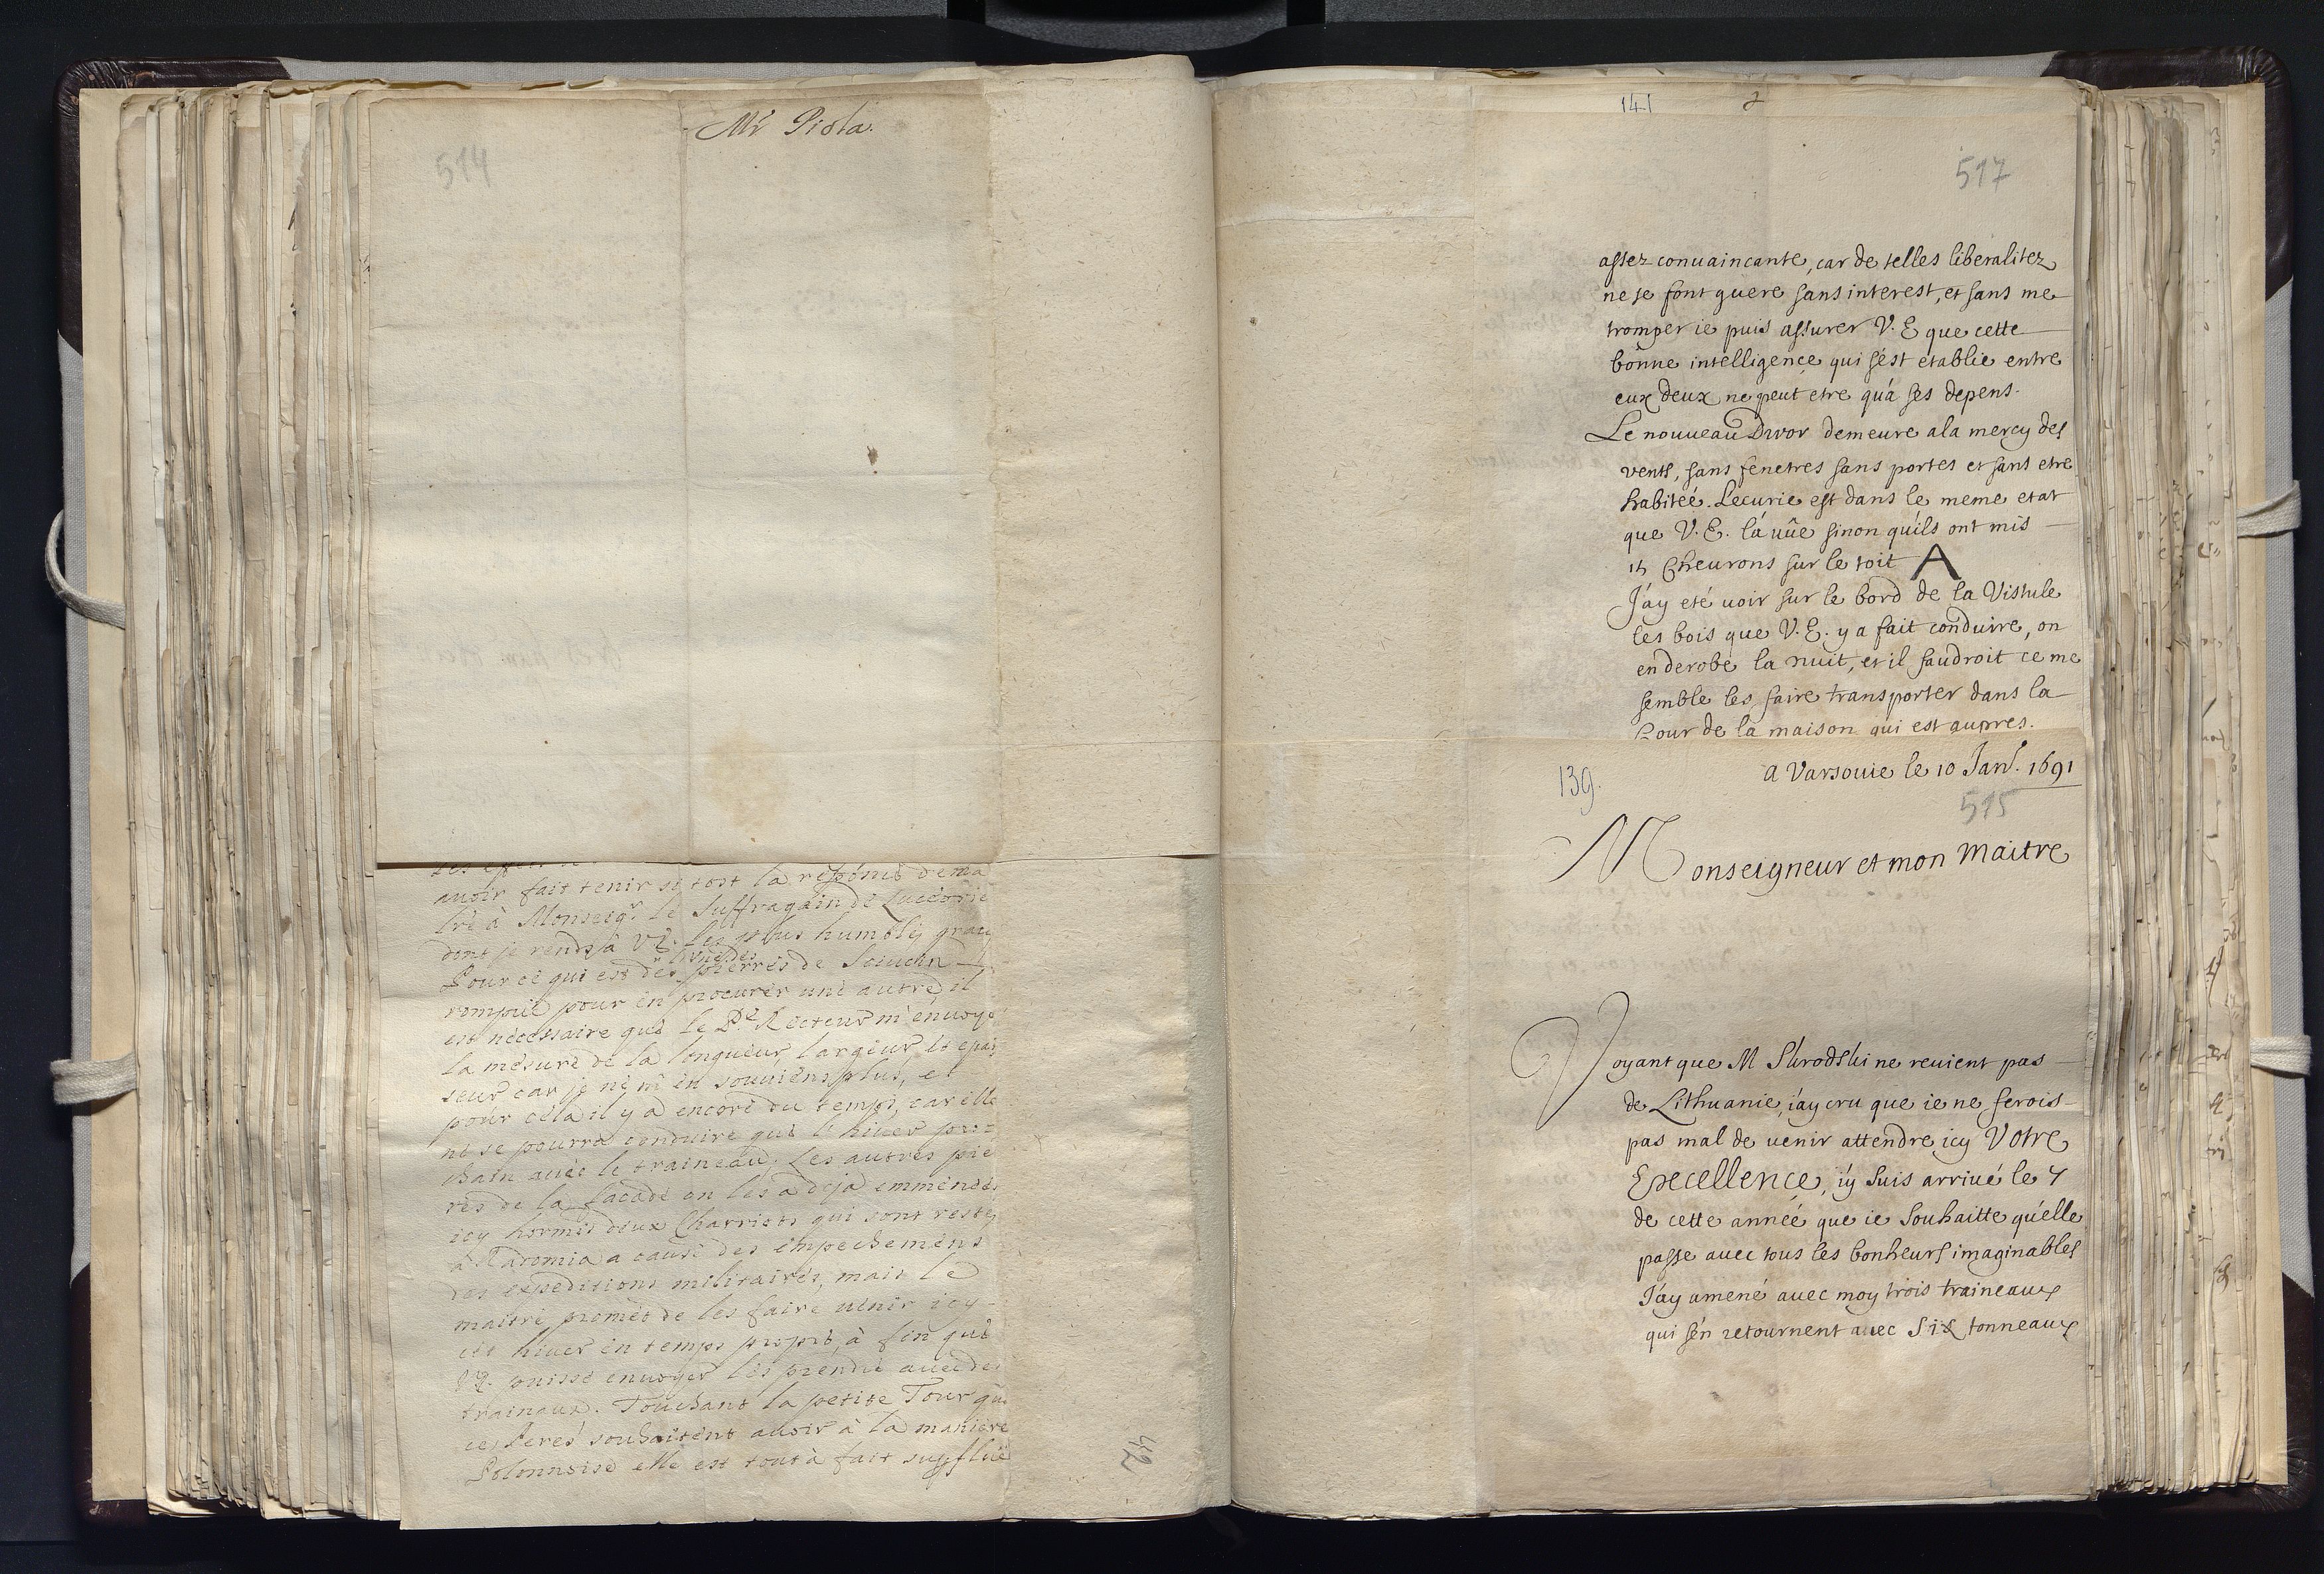 Mr Piola.
514
avoir fait tenir si tost la response de ma
lre à Monseigr. le Suffragain de Luceorie
dont je rends à VE. les plus humbles grac
Pour ce qui est des pierres de
rompüe pour en procurer une autre, il
est necessaire que le Pe. Recteur m'envoye
la mesure de la longueur, largeur, et epais
seur car je ne m'en souviens plus, et
pour cela il y a encore du temps, car elle
ne se pourra conduire que l'hiver pro=
chain avec le traineau. Les autres pie
res de la facade on les a deja emmenées
icy hormis deux Charriots qui sont restez
à Radomia a cause des empechemens
des expeditions militaires, mais le
maitre promet de les faire venir icy
cet hiver en temps propre, à fin que
VE. puisse envoyer les prendre avec des
trainaux. Touchant la petite Tour que
ces Peres souhaitent avoir à la maniere
Polonnoise elle est tout à fait supflue
141 2
517
assez conuaincante, car de telles liberalitez
ne se font guere sans interest, et sans me
tromper ie puis assurer V. E que cette
bonne intelligence qui s'ést etablie entre
eux deux ne peut etre qu'á ses depens.
Le nouueau Dwor demeure a la mercy des
vents, sans fenetres sans portes et sans etre
habiteé. Lecurie est dans le meme etat
que V. E. lá uûe sinon qu'ils ont mis
15 Cheurons sur le toit A
J'ay eté uoir sur le bord de la Vistule
les bois que V. E. y a fait conduire, on
en derobe la nuit, et il faudroit ce me
semble les faire transporter dans la
Cour de la maison qui est aupres.
139.
a Varsouie le 10 Janr. 1691
515
Monseigneur et mon maitre
Voyant que M Skrodski ne reuient pas
de Lithuanie, i'ay cru que ie ne ferois
pas mal de uenir attendre icy Votre
Excellence, i'ÿ suis arriué le 4
de cette anneé que ie souhaitte qu'elle
passe auec tous les bonheurs imaginables
J'ay amené auec moy trois traineaux
qui s'én retournent auec six tonneaux